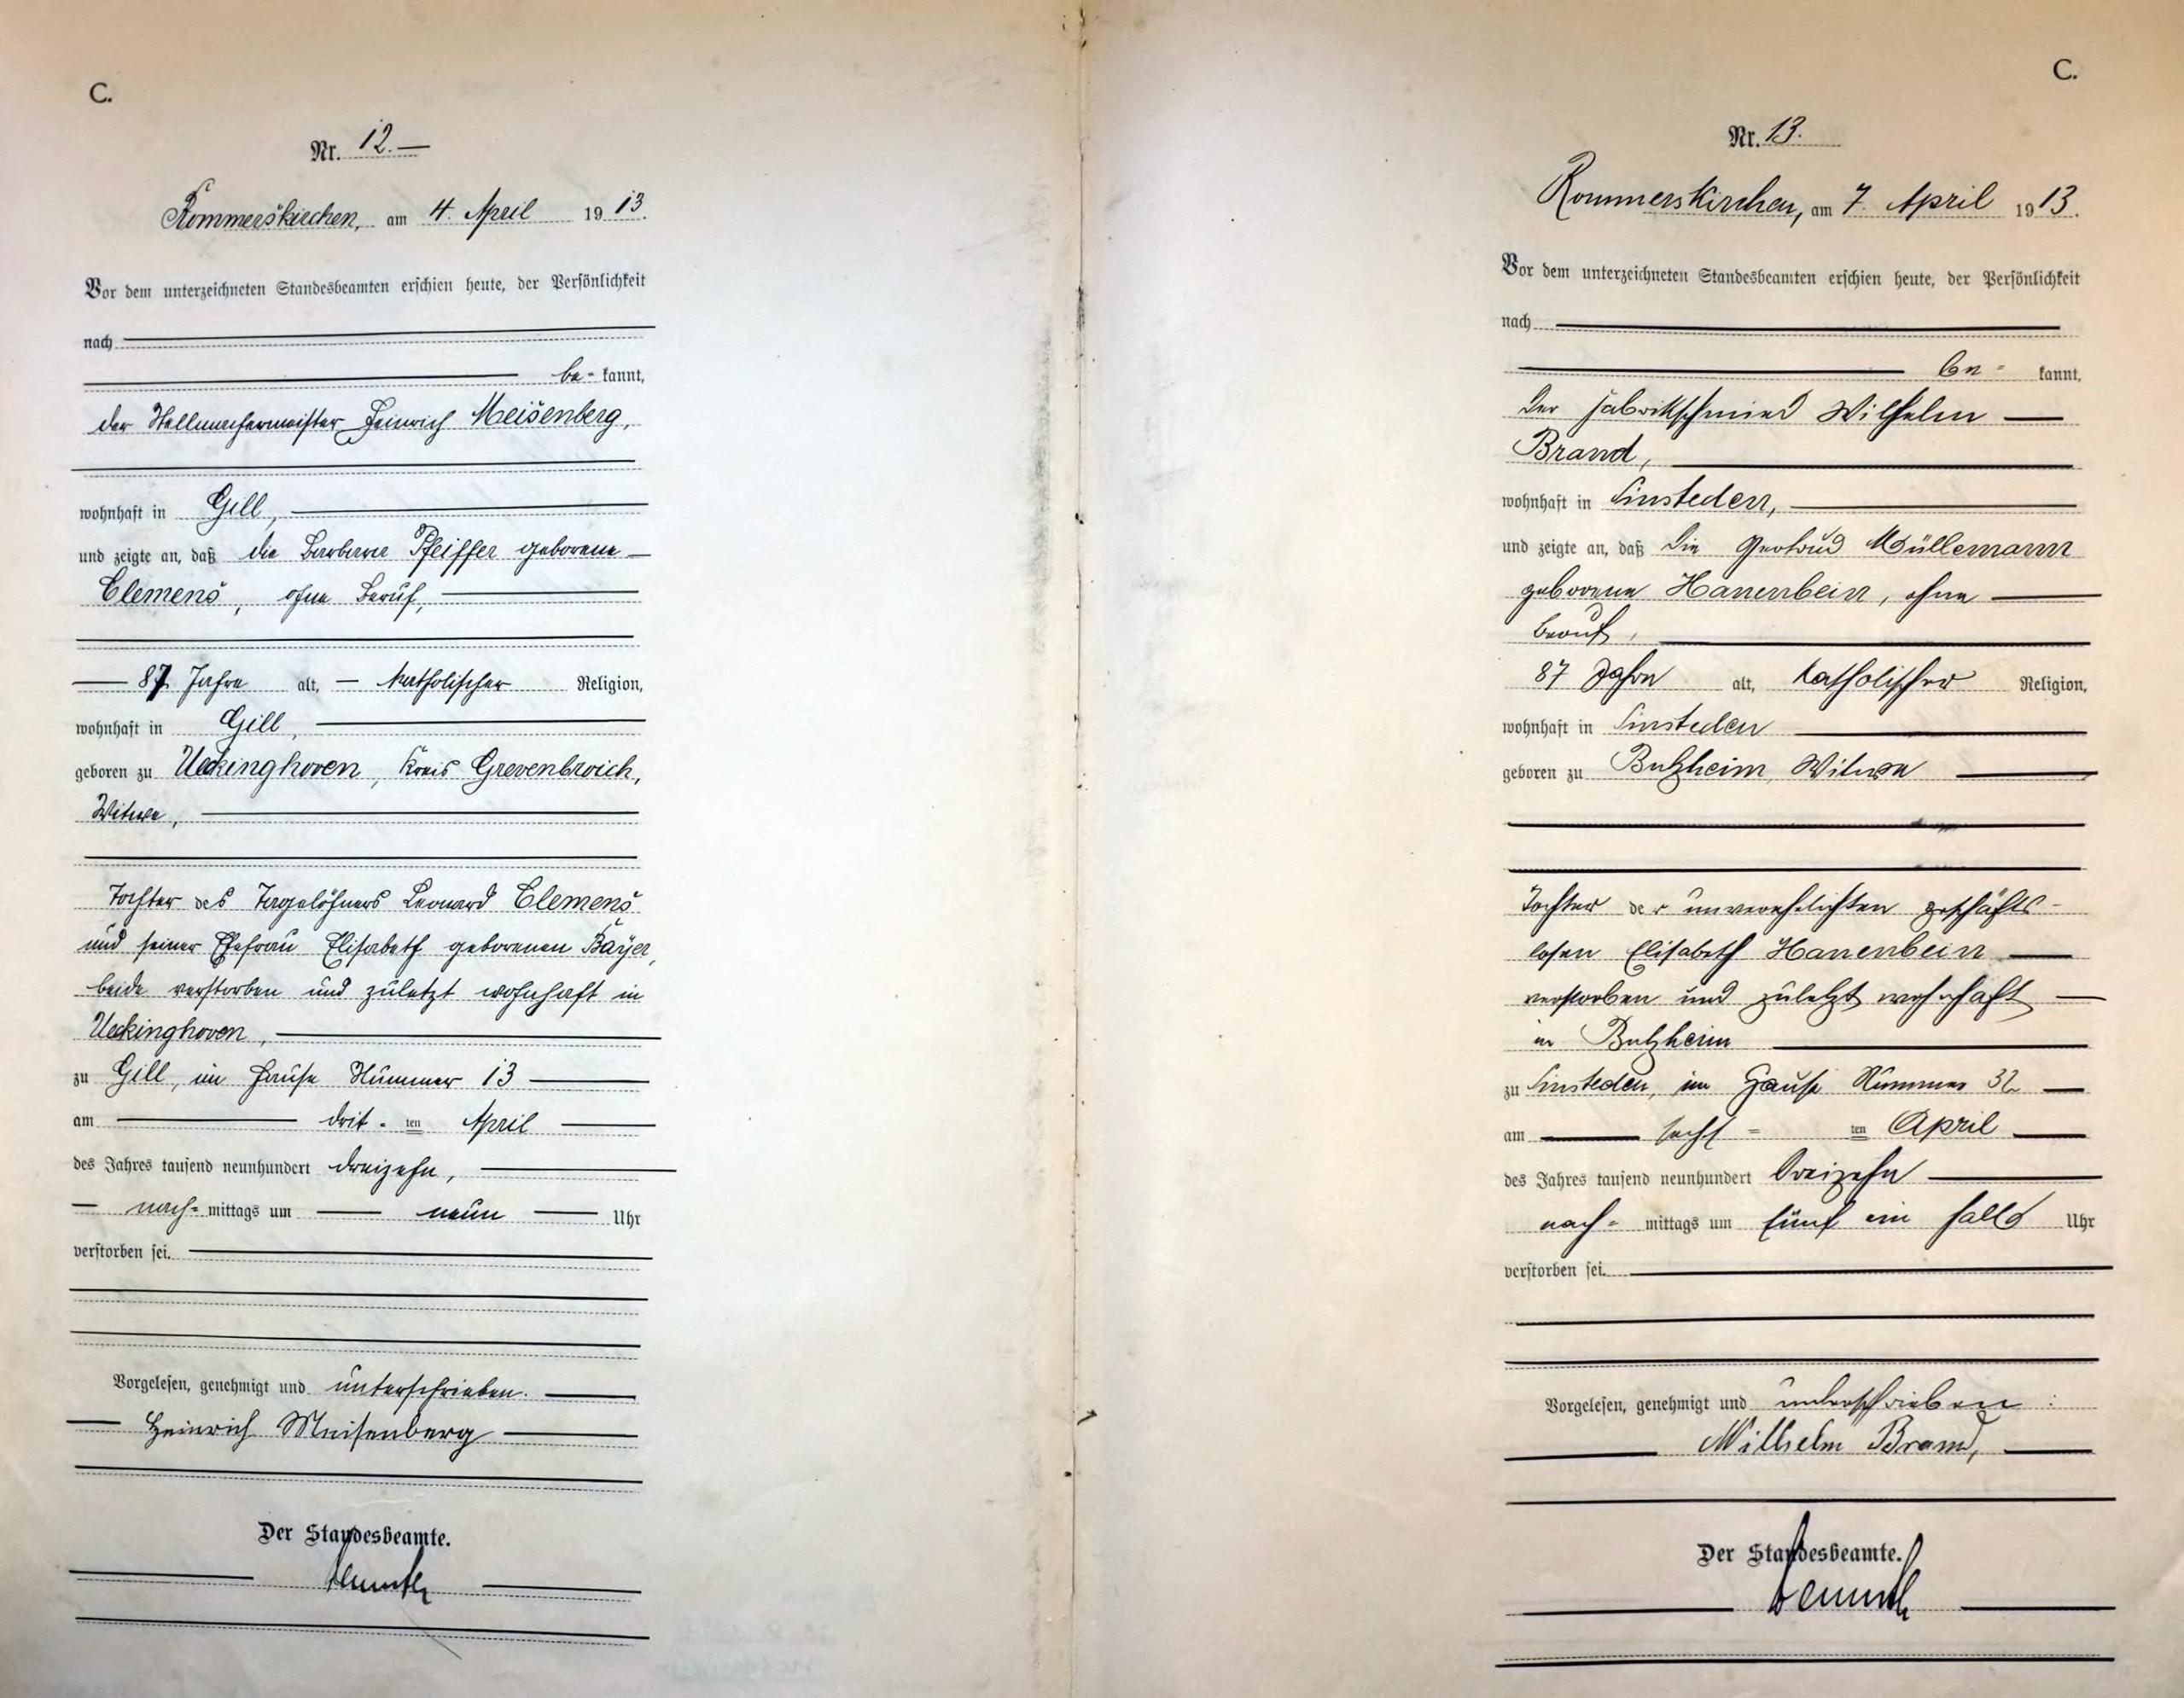 C.
Nr. 12.—
Rommerskirchen, am 4. April 1913.
Vor dem unterzeichneten Standesbeamten erschien heute, der Persönlichkeit
nach
be- kannt,
der Stellmachermeister Heinrich Meisenberg,
wohnhaft in Gill,
und zeigte an, daß die Barbara Pfeiffer geborene
Clemens, ohne Beruf,
87 Jahre alt, katholischer Religion,
wohnhaft in Gill,
geboren zu Ueckinghoven, Kreis Grevenbroich,
Witwe,
Tochter des Tagelöhners Leonard Clemens
und seiner Ehefrau Elisabeth geborenen Bayer,
beide verstorben und zuletzt wohnhaft in
Ueckinghoven,
zu Gill, im Hause Nummer 13
am drit- ten April
des Jahres tausend neunhundert dreizehn,
nach- mittags um neun Uhr
verstorben sei.
Vorgelesen, genehmigt und unterschrieben.
Heinrich Meisenberg
Der Standesbeamte.
C.
Nr. 13.
Rommerskirchen, am 7. April 1913.
Vor dem unterzeichneten Standesbeamten erschien heute, der Persönlichkeit
nach
be- kannt,
der Fabrikschmied Wilhelm
Brand,
wohnhaft in Sinsteden,
und zeigte an, daß die Gertrud Müllemann
geborene Hanenbein, ohne
Beruf,
87 Jahre alt, katholischer Religion,
wohnhaft in Sinsteden
geboren zu Butzheim, Witwe
Tochter der unverehelichten geschäfts-
losen Elisabeth Hanenbein
verstorben und zuletzt wohnhaft
in Butzheim
zu Sinsteden, im Hause Nummer 32
am sechs- ten April
des Jahres tausend neunhundert dreizehn
nach- mittags um fünf ein halb Uhr
verstorben sei.
Vorgelesen, genehmigt und unterschrieben :
Wilhelm Brand,
Der Standesbeamte.